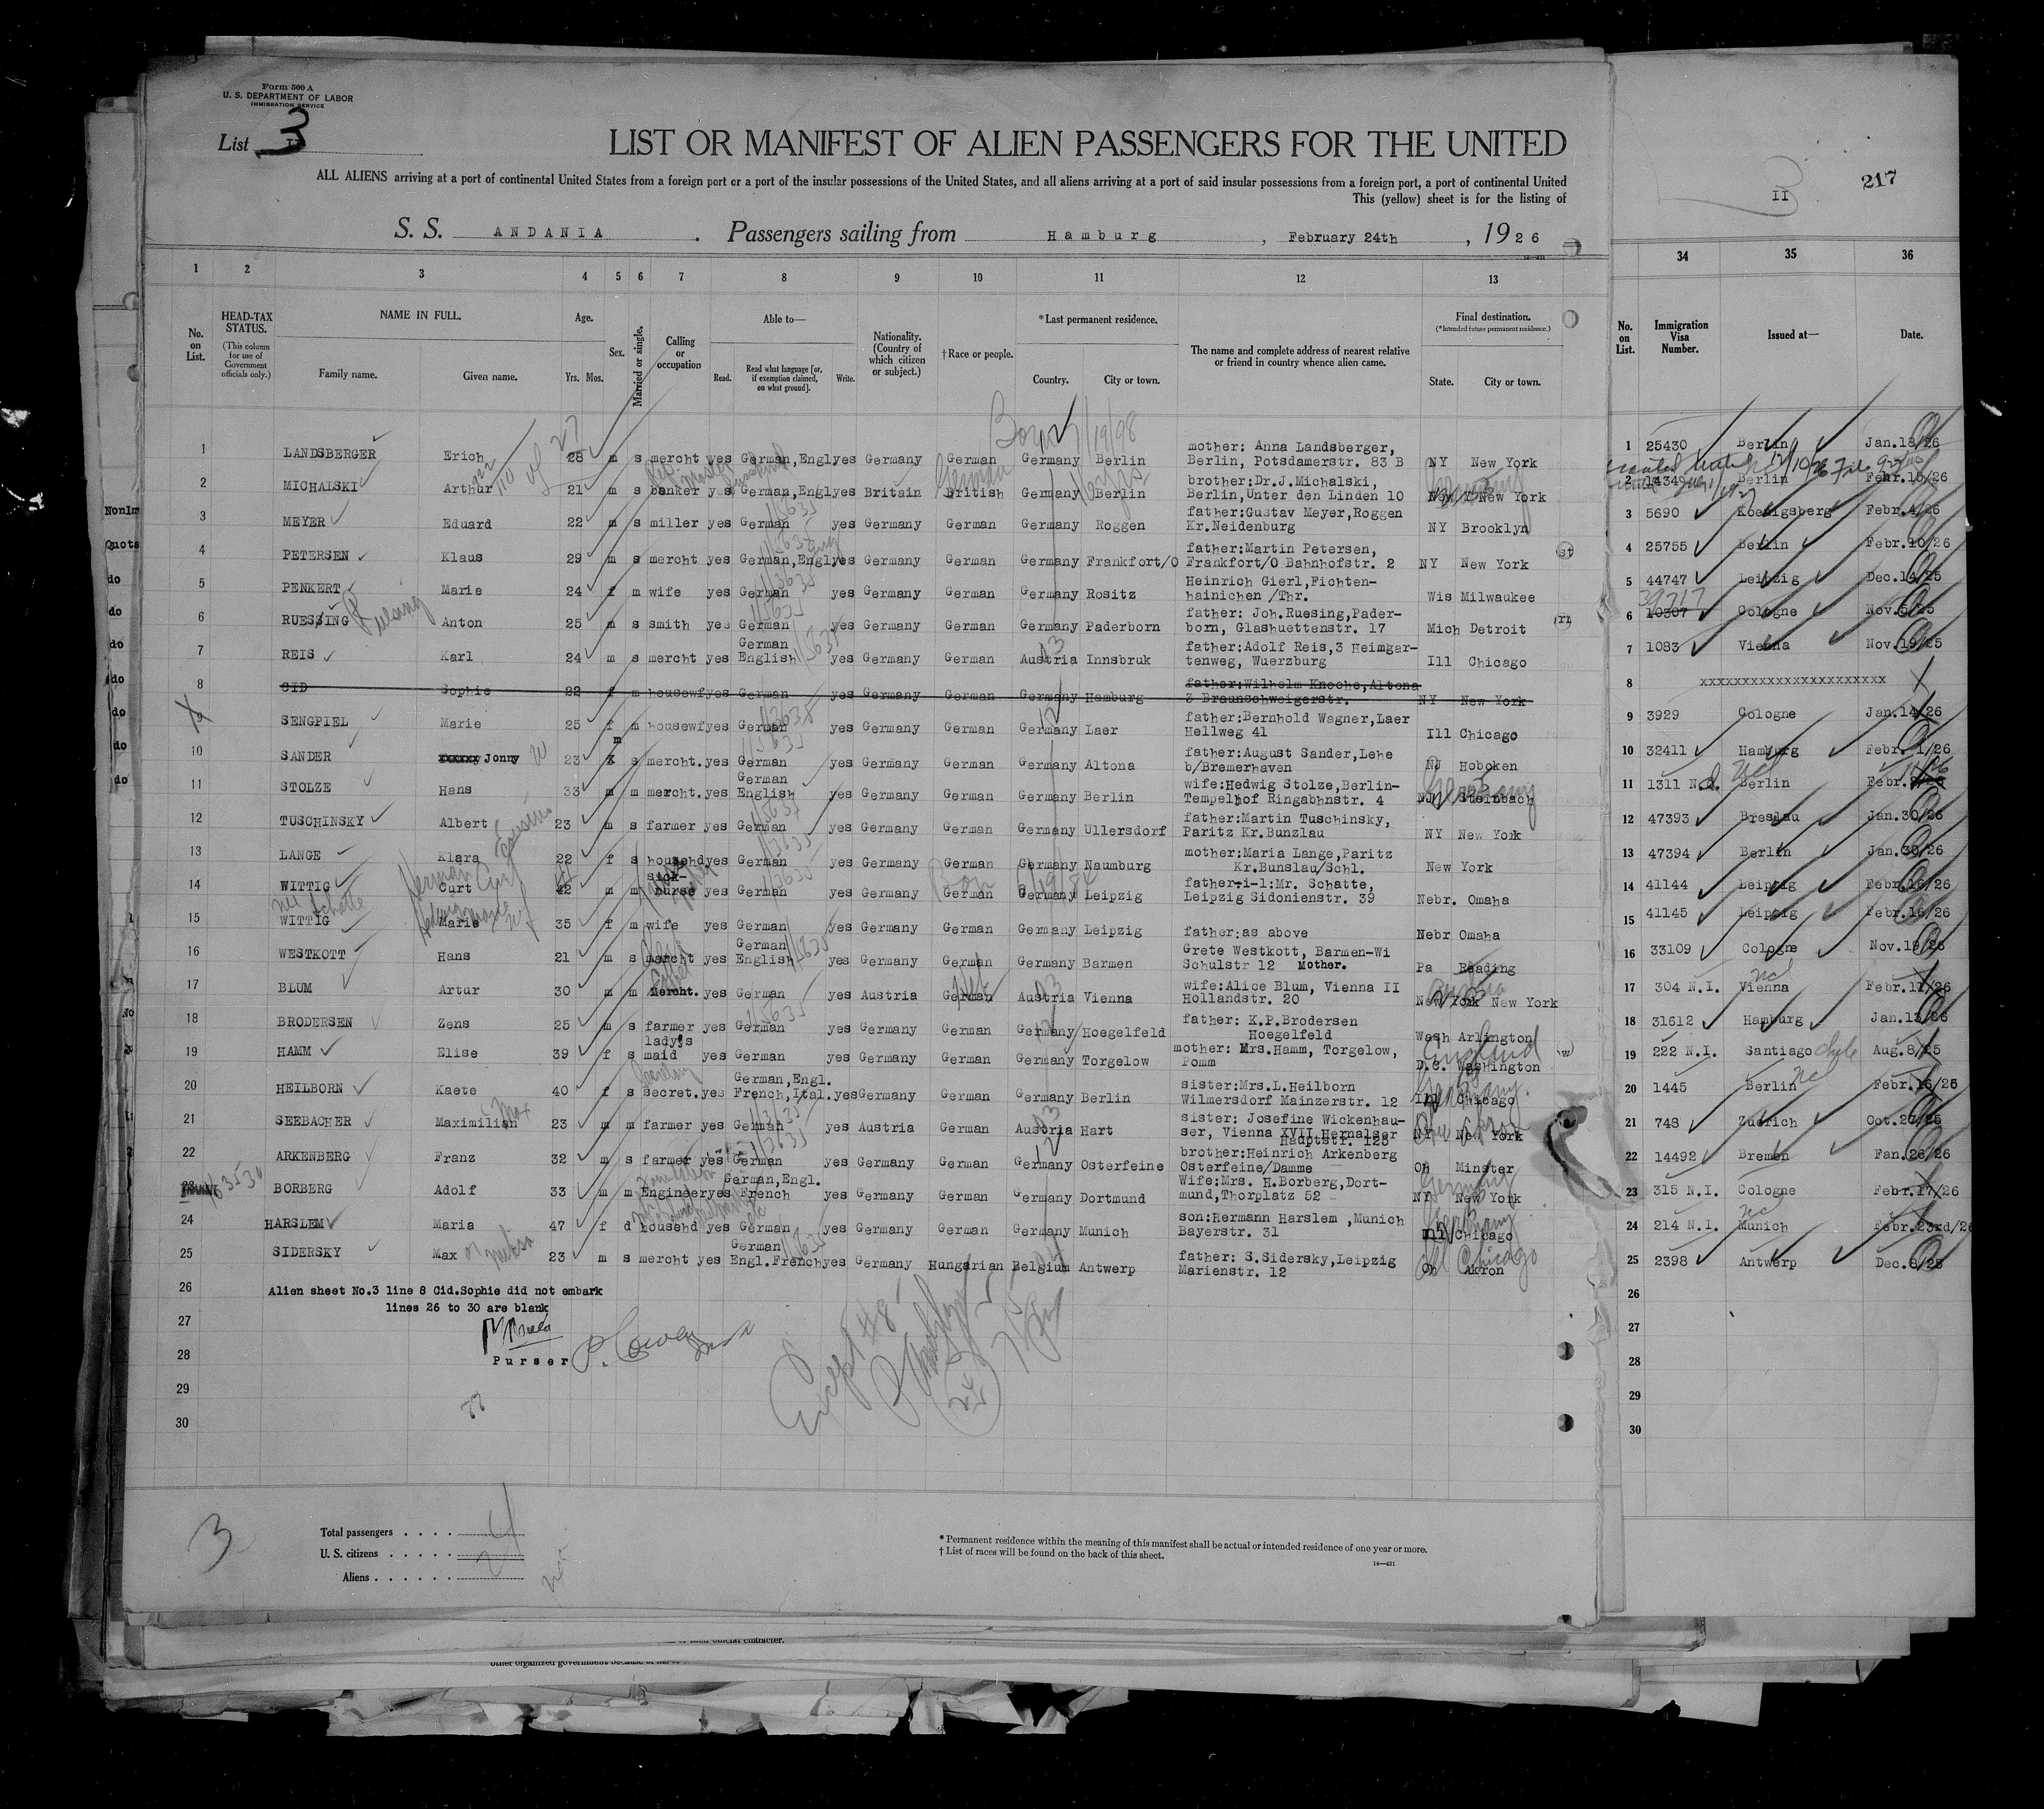 Form 500 A
U. S. DEPARTMENT OF LABOR
IMMIGRATION SERVICE
List 3
LIST OR MANIFEST OF ALIEN PASSENGERS FOR THE UNITED
ALL ALIENS arriving at a port of continental United States from a foreign port or a port of the insular possessions of the United States, and all aliens arriving at a port of said insular possessions from a foreign port, a port of continental United
This (yellow) sheet is for the listing of
S. S. ANDANIA. Passengers sailing from Hamburg, February 24th, 1926
II 217
1 2 3 4 5 6 7 8 9 10 11 12 13 34 35 36
No. on List. HEAD-TAX STATUS. (This column for use of Government officials only.) NAME IN FULL. Family name. Given name. Age. Yrs. Mos. Sex. Married or single. Calling or occupation Able to— Read. Read what language [or, if exemption claimed, on what ground]. Write. Nationality. (Country of which citizen or subject.) †Race or people. *Last permanent residence. Country. City or town. The name and complete address of nearest relative or friend in country whence alien came. Final destination. (*Intended future permanent residence.) State. City or town. No. on List. Immigration Visa Number. Issued at— Date.
1 LANDSBERGER Erich 28 m s mercht yes German,Engl yes Germany German Germany Berlin mother: Anna Landsberger, Berlin, Potsdamerstr. 83 B NY New York 1 25430 Berlin Jan.18/26
2 MICHALSKI Arthur 21 m s banker yes German,Engl yes Britain British Germany Berlin brother:Dr.J.Michalski, Berlin,Unter den Linden 10 New York 2 Berlin Febr.15/26
3 MEYER Eduard 22 m s miller yes German yes Germany German Germany Roggen father:Gustav Meyer,Roggen Kr.Neidenburg NY Brooklyn 3 5690 Koenigsberg Febr.4/26
4 PETERSEN Klaus 29 m s mercht yes German,Engl yes Germany German Germany Frankfort/O father:Martin Petersen, Frankfort/O Bahnhofstr. 2 NY New York 4 25755 Berlin Febr.10/26
5 PENKERT Marie 24 f m wife yes German yes Germany German Germany Rositz Heinrich Gierl,Fichtenhainichen /Thr. Wis Milwaukee 5 44747 Leipzig Dec.14/25
6 RUESSING Ruesing Anton 25 m s smith yes German yes Germany German Germany Paderborn father: Joh.Ruesing,Paderborn, Glashuettenstr. 17 Mich Detroit 6 10307 Cologne Nov.6/25
7 REIS Karl 24 m s mercht yes German English yes Germany German Austria Innsbruk father:Adolf Reis,3 Heimgartenweg, Wuerzburg Ill Chicago 7 1083 Vienna Nov.19/25
8 CID Sophie 22 f m housewf yes German yes Germany German Germany Hamburg father:Wilhelm Knoche,Altona 3 Braunschweigerstr. NY New York 8 xxxxxxxxxxxxxxxxxxxxxx
9 SENGPIEL Marie 25 f m housewf yes German yes Germany German Germany Laer father:Bernhold Wagner,Laer Hellweg 41 Ill Chicago 9 3929 Cologne Jan.14/26
10 SANDER xxxxxx Jonny 23 m s mercht. yes German yes Germany German Germany Altona father:August Sander,Lehe b/Bremerhaven NJ Hoboken 10 32411 Hamburg Febr.1/26
11 STOLZE Hans 33 m m mercht. yes German English yes Germany German Germany Berlin wife:Hedwig Stolze,Berlin-Tempelhof Ringabhnstr. 4 Steinbach 11 1311 Berlin Febr.
12 TUSCHINSKY Albert 23 m s farmer yes German yes Germany German Germany Ullersdorf father:Martin Tuschinsky, Paritz Kr.Bunzlau NY New York 12 47393 Breslau Jan.30/26
13 LANGE Klara 22 f s househd yes German yes Germany German Germany Naumburg mother:Maria Lange,Paritz Kr.Bunslau/Schl. New York 13 47394 Berlin Jan.30/26
14 WITTIG Curt 42 m m sick-nurse yes German yes Germany German Germany Leipzig father-i-l:Mr. Schatte, Leipzig Sidonienstr. 39 Nebr. Omaha 14 41144 Leipzig Febr.16/26
15 WITTIG Marie 35 f m wife yes German yes Germany German Germany Leipzig father:as above Nebr Omaha 15 41145 Leipzig Febr.16/26
16 WESTKOTT Hans 21 m s mercht yes German English yes Germany German Germany Barmen Grete Westkott, Barmen-Wi Schulstr 12 Mother. Pa Reading 16 33109 Cologne Nov.19/25
17 BLUM Artur 30 m m Mercht. yes German yes Austria German Austria Vienna wife:Alice Blum, Vienna II Hollandstr. 20 New York New York 17 304 N.I. Vienna Febr.11/26
18 BRODERSEN Zens 25 m s farmer yes German yes Germany German Germany Hoegelfeld father: K.P.Brodersen Hoegelfeld Wash Arlington 18 31612 Hamburg Jan.13/26
19 HAMM Elise 39 f s lady's maid yes German yes Germany German Germany Torgelow mother: Mrs.Hamm, Torgelow, Pomm D.C. Washington England 19 222 N.I. Santiago Aug.8/25
20 HEILBORN Kaete 40 f s secret. yes German,Engl. French,Ital. yes Germany German Germany Berlin sister:Mrs.L.Heilborn Wilmersdorf Mainzerstr. 12 Ill Chicago 20 1445 Berlin Febr.16/26
21 SEEBACHER Maximilian Max 23 m m farmer yes German yes Austria German Austria Hart sister: Josefine Wickenhauser, Vienna XVII,Hernalser Hauptstr. 125 NY New York 21 748 Zuerich Oct.27/25
22 ARKENBERG Franz 32 m s farmer yes German yes Germany German Germany Osterfeine brother:Heinrich Arkenberg Osterfeine/Damme Oh Minster 22 14492 Bremen Fan.26/26
23 BORBERG Adolf 33 m m Engineer yes German,Engl. French yes Germany German Germany Dortmund Wife:Mrs. H.Borberg,Dortmund,Thorplatz 52 NY New York 23 315 N.I. Cologne Febr.17/26
24 HARSLEM Maria 47 f d househd yes German yes Germany German Germany Munich son:Hermann Harslem ,Munich Bayerstr. 31 Ill Chicago 24 214 N.I. Munich Febr.23rd/26
25 SIDERSKY Max 23 m s mercht yes German Engl.French yes Germany Hungarian Belgium Antwerp father: S.Sidersky,Leipzig Marienstr. 12 Oh Akron Ill Chicago 25 2398 Antwerp Dec.8/25
26 Alien sheet No.3 line 8 Cid.Sophie did not embark 26
lines 26 to 30 are blank
27 27
28 Purser 28
29 29
30 30
3
Total passengers . . . . 24
U. S. citizens . . . . .
Aliens . . . . . .
* Permanent residence within the meaning of this manifest shall be actual or intended residence of one year or more.
† List of races will be found on the back of this sheet.
14—431